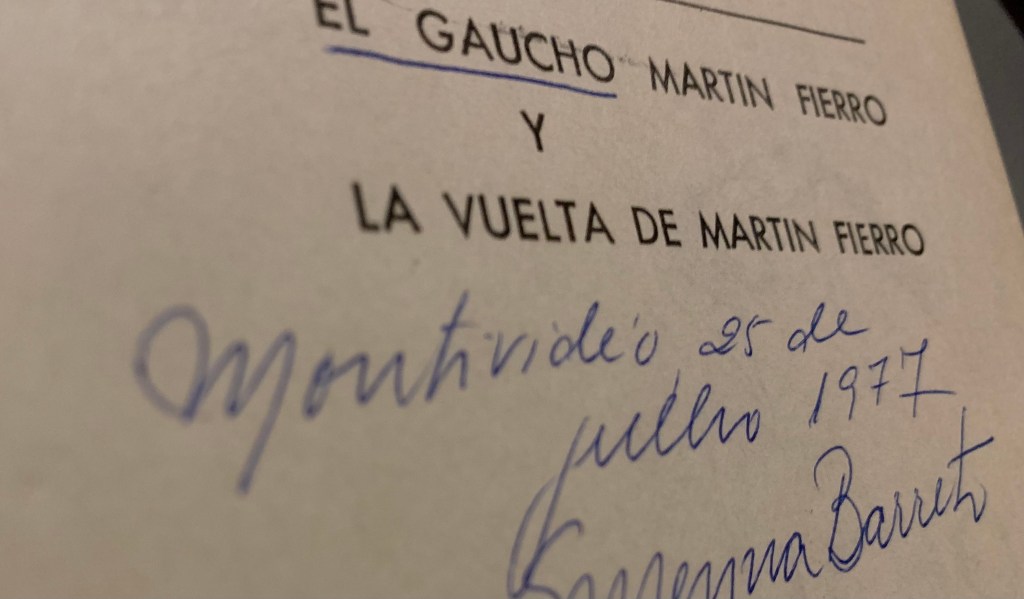 EL GAUCHO MARTIN FIERRO
Y
LA VUELTA DE MARTIN FIERRO
Montividéo, 25 de
julho 1977
Barreto